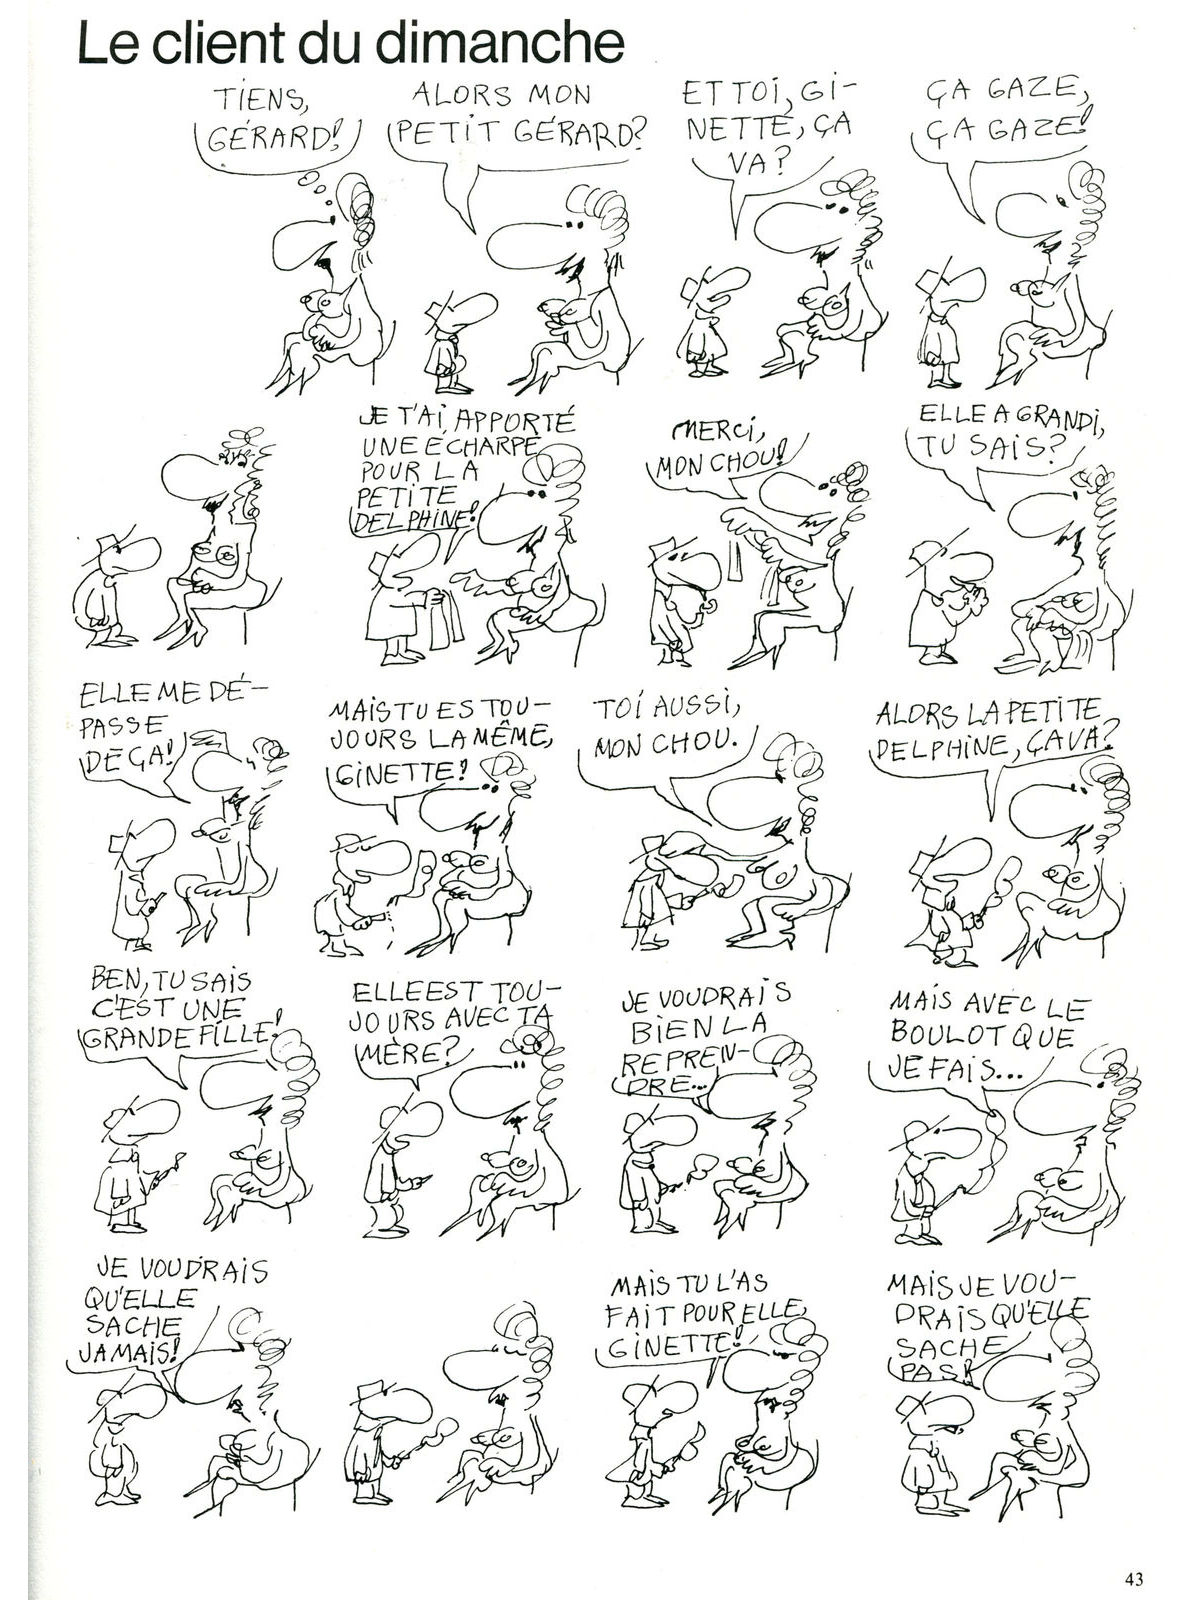 Le client du dimanche
TIENS,
GÉRARD!
ALORS MON
PETIT GÉRARD?
ET TOI, GI-
NETTE, ÇA
VA?
ÇA GAZE,
ÇA GAZE!
JE T'AI APPORTÉ
UNE ÉCHARPE
POUR LA
PETITE
DELPHINE!
MERCI,
MON CHOU!
ELLE A GRANDI,
TU SAIS?
ELLE ME DÉ-
PASSE
DE ÇA!
MAIS TU ES TOU-
JOURS LA MÊME,
GINETTE!
TOI AUSSI,
MON CHOU.
ALORS LA PETITE
DELPHINE, ÇA VA?
BEN, TU SAIS
C'EST UNE
GRANDE FILLE!
ELLE EST TOU-
JOURS AVEC TA
MÈRE?
JE VOUDRAIS
BIEN LA
REPREN-
DRE...
MAIS AVEC LE
BOULOT QUE
JE FAIS...
JE VOUDRAIS
QU'ELLE
SACHE
JAMAIS!
MAIS TU L'AS
FAIT POUR ELLE,
GINETTE!
MAIS JE VOU-
DRAIS QU'ELLE
SACHE
PAS!
43